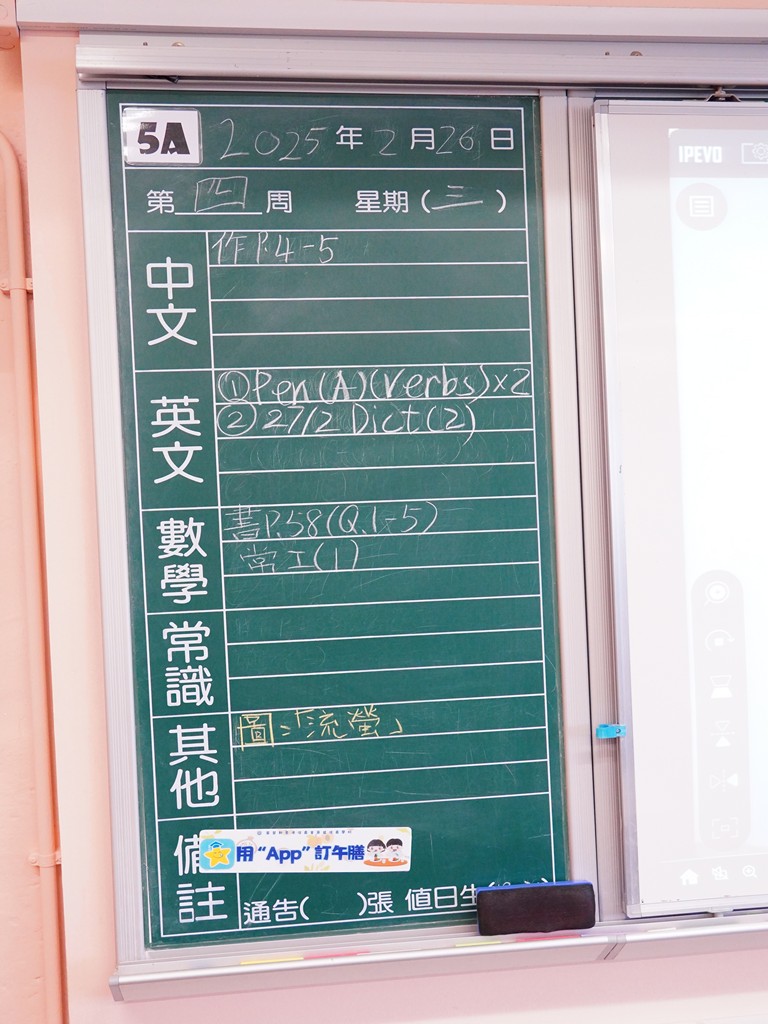 5A 2025年2月26日
第四周 星期(三)
中文
作P.4-5
英文
①Pen(A)(Verbs)×2
②27/2 Dict(2)
數學
書P.58(Q.1-5)
常工(1)
常識
其他
圖:「流螢」
備註
用“App”訂午膳
通告( )張 值日生
IPEVO